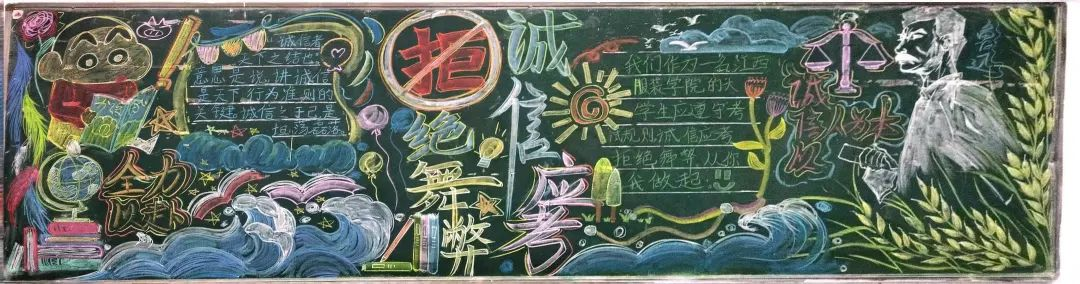 诚信者
天下之结也
意思是说,讲诚信
是天下行为准则的
关键。诚信,于己是
全力
以赴
拒
绝
舞
弊
诚
信
应
考
我们作为一名江西
服装学院的大
学生应遵守考
试规则诚信应考
拒绝舞弊从你
我做起
诚信